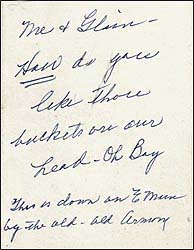 Me & Glim -
How do you
like those
buckets on our
head - Oh Boy
This is down on E Main
by the old - old Armory